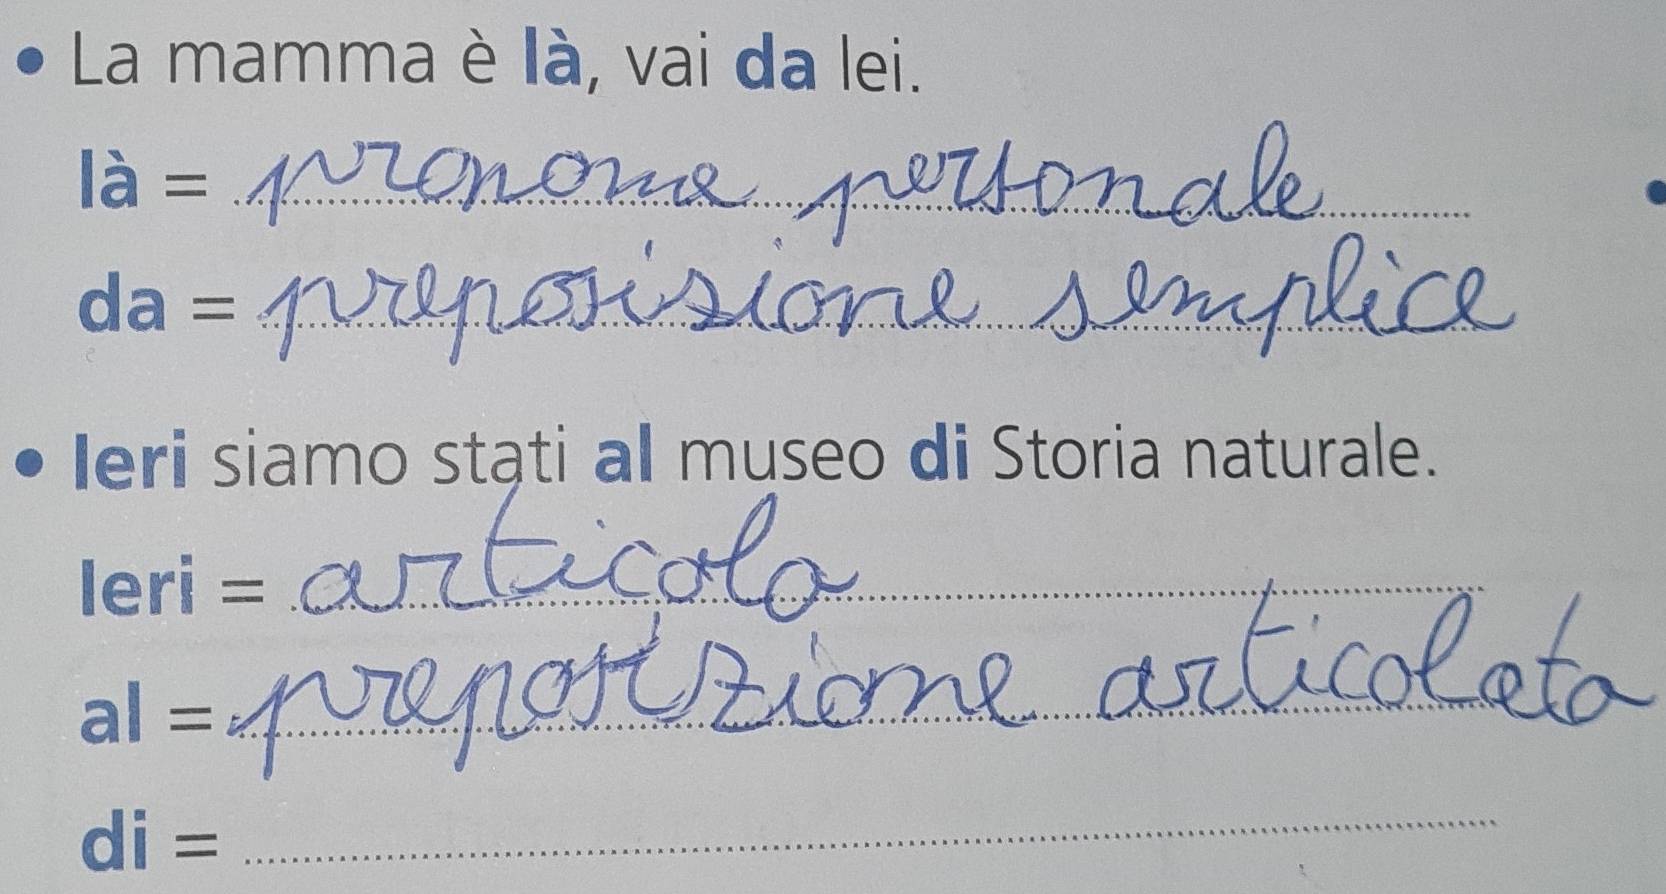 • La mamma è là, vai da lei.
là = pronome personale
da = preposizione semplice
• Ieri siamo stati al museo di Storia naturale.
Ieri = articolo
al = preposizione articolata
di =